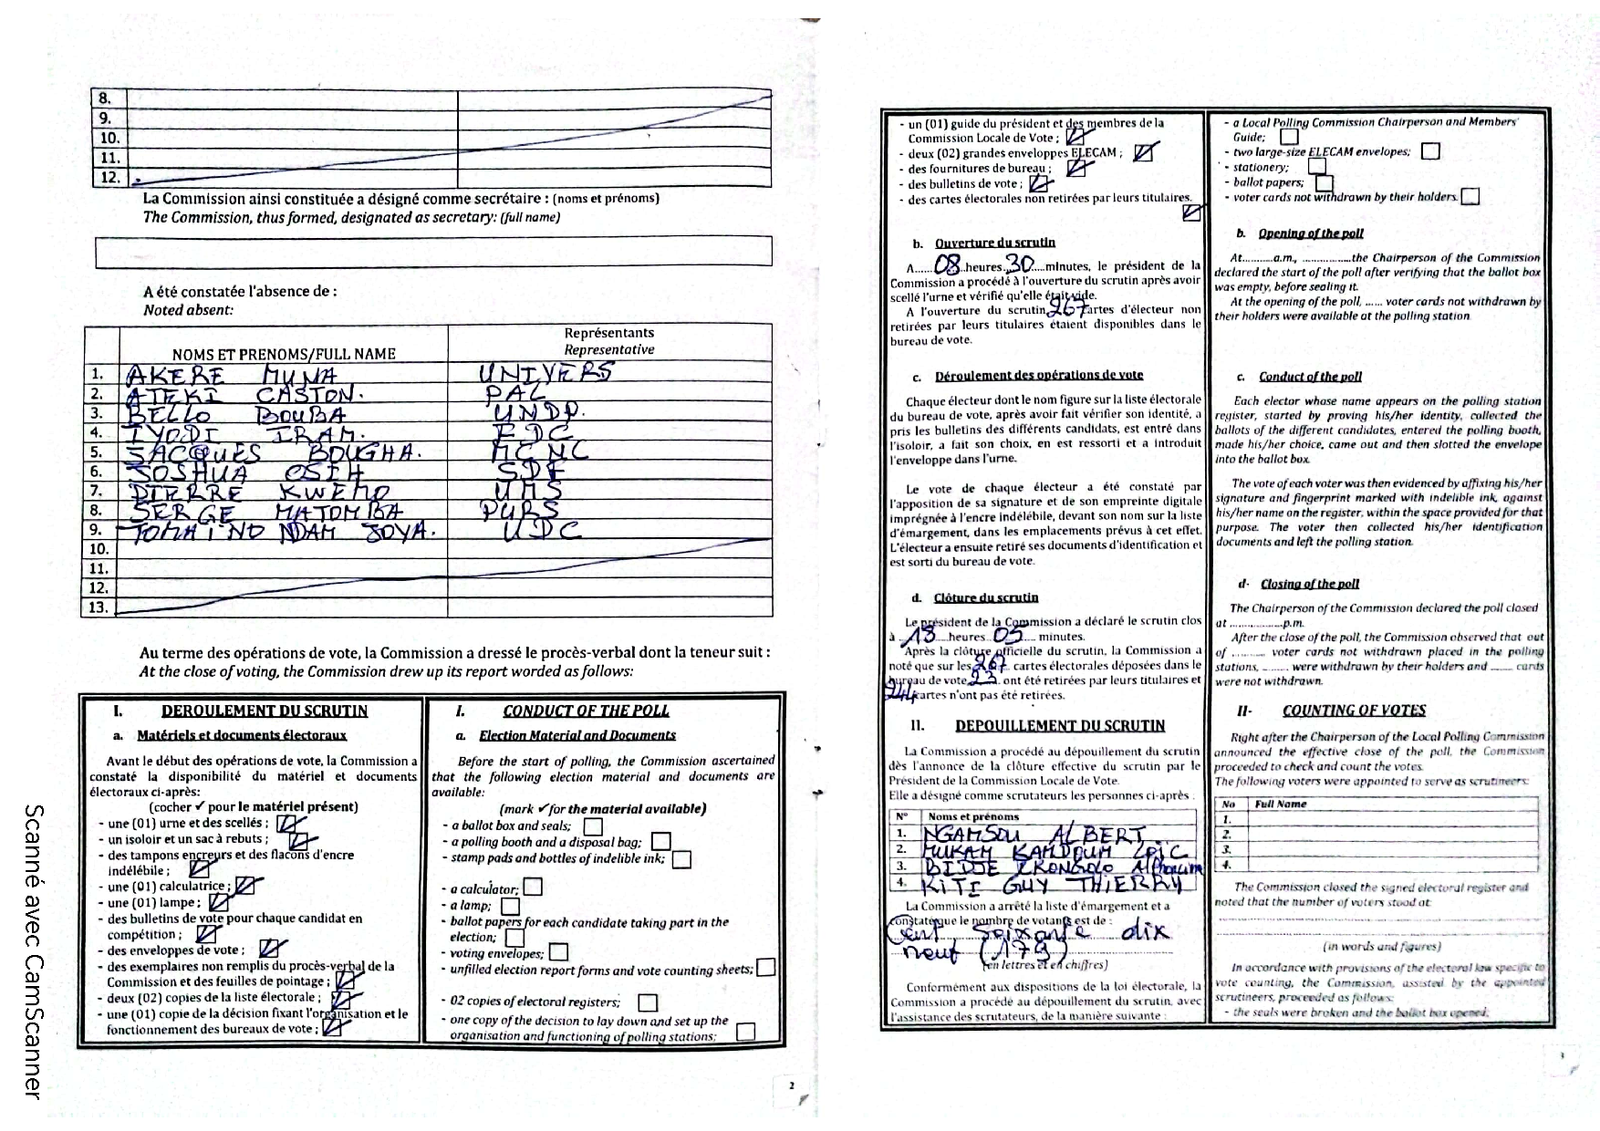 8.
9.
10.
11.
12.
La Commission ainsi constituée a désigné comme secrétaire : (noms et prénoms)
The Commission, thus formed, designated as secretary: (full name)
A été constatée l'absence de :
Noted absent:
NOMS ET PRENOMS/FULL NAME
Représentants
Representative
1. AKERE MUNA UNIVERS
2. ATEKI CASTON. PAL
3. BELLO BOUBA UNDP.
4. IYODI IRAM. FDC
5. JACQUES BOUGHA. MCNC
6. JOSHUA OSIH SDF
7. PIERRE KWEMO UMS
8. SERGE MATOMBA PURS
9. TOMAINO NDAM JOYA. UDC
10.
11.
12.
13.
Au terme des opérations de vote, la Commission a dressé le procès-verbal dont la teneur suit :
At the close of voting, the Commission drew up its report worded as follows:
I. DEROULEMENT DU SCRUTIN
a. Matériels et documents électoraux
Avant le début des opérations de vote, la Commission a
constaté la disponibilité du matériel et documents
électoraux ci-après:
(cocher ✓ pour le matériel présent)
- une (01) urne et des scellés ;
- un isoloir et un sac à rebuts ;
- des tampons encreurs et des flacons d'encre
indélébile ;
- une (01) calculatrice ;
- une (01) lampe ;
- des bulletins de vote pour chaque candidat en
compétition ;
- des enveloppes de vote ;
- des exemplaires non remplis du procès-verbal de la
Commission et des feuilles de pointage ;
- deux (02) copies de la liste électorale ;
- une (01) copie de la décision fixant l'organisation et le
fonctionnement des bureaux de vote ;
I. CONDUCT OF THE POLL
a. Election Material and Documents
Before the start of polling, the Commission ascertained
that the following election material and documents are
available:
(mark ✓for the material available)
- a ballot box and seals;
- a polling booth and a disposal bag;
- stamp pads and bottles of indelible ink;
- a calculator;
- a lamp;
- ballot papers for each candidate taking part in the
election;
- voting envelopes;
- unfilled election report forms and vote counting sheets;
- 02 copies of electoral registers;
- one copy of the decision to lay down and set up the
organisation and functioning of polling stations;
2
Scanné avec CamScanner
- un (01) guide du président et des membres de la
Commission Locale de Vote ;
- deux (02) grandes enveloppes ELECAM ;
- des fournitures de bureau ;
- des bulletins de vote ;
- des cartes électorales non retirées par leurs titulaires.
b. Ouverture du scrutin
A......08..heures.30....minutes, le président de la
Commission a procédé à l'ouverture du scrutin après avoir
scellé l'urne et vérifié qu'elle était vide.
A l'ouverture du scrutin, 267 cartes d'électeur non
retirées par leurs titulaires étaient disponibles dans le
bureau de vote.
c. Déroulement des opérations de vote
Chaque électeur dont le nom figure sur la liste électorale
du bureau de vote, après avoir fait vérifier son identité, a
pris les bulletins des différents candidats, est entré dans
l'isoloir, a fait son choix, en est ressorti et a introduit
l'enveloppe dans l'urne.
Le vote de chaque électeur a été constaté par
l'apposition de sa signature et de son empreinte digitale
imprégnée à l'encre indélébile, devant son nom sur la liste
d'émargement, dans les emplacements prévus à cet effet.
L'électeur a ensuite retiré ses documents d'identification et
est sorti du bureau de vote.
d. Clôture du scrutin
Le président de la Commission a déclaré le scrutin clos
à ..18...heures ..05.... minutes.
Après la clôture officielle du scrutin, la Commission a
noté que sur les 267. cartes électorales déposées dans le
bureau de vote 23.. ont été retirées par leurs titulaires et
244 cartes n'ont pas été retirées.
II. DEPOUILLEMENT DU SCRUTIN
La Commission a procédé au dépouillement du scrutin
dès l'annonce de la clôture effective du scrutin par le
Président de la Commission Locale de Vote.
Elle a désigné comme scrutateurs les personnes ci-après :
N° Noms et prénoms
1. NGAMSOU ALBERT
2. MUKAM KAMDOUM LOIC
3. BIDJE
4. KITI GUY THIERRY
La Commission a arrêté la liste d'émargement et a
constaté que le nombre de votants est de :
Cent soixante dix
neuf (179)
(en lettres et en chiffres)
Conformément aux dispositions de la loi électorale, la
Commission a procédé au dépouillement du scrutin, avec
l'assistance des scrutateurs, de la manière suivante :
- a Local Polling Commission Chairperson and Members'
Guide;
- two large-size ELECAM envelopes;
- stationery;
- ballot papers;
- voter cards not withdrawn by their holders.
b. Opening of the poll
At..........a.m., ...............the Chairperson of the Commission
declared the start of the poll after verifying that the ballot box
was empty, before sealing it.
At the opening of the poll, ...... voter cards not withdrawn by
their holders were available at the polling station
c. Conduct of the poll
Each elector whose name appears on the polling station
register, started by proving his/her identity, collected the
ballots of the different candidates, entered the polling booth,
made his/her choice, came out and then slotted the envelope
into the ballot box.
The vote of each voter was then evidenced by affixing his/her
signature and fingerprint marked with indelible ink, against
his/her name on the register, within the space provided for that
purpose. The voter then collected his/her identification
documents and left the polling station.
d- Closing of the poll
The Chairperson of the Commission declared the poll closed
at .................p.m.
After the close of the poll, the Commission observed that out
of .......... voter cards not withdrawn placed in the polling
stations, ........ were withdrawn by their holders and ....... cards
were not withdrawn.
II- COUNTING OF VOTES
Right after the Chairperson of the Local Polling Commission
announced the effective close of the poll, the Commission
proceeded to check and count the votes.
The following voters were appointed to serve as scrutineers:
No Full Name
1.
2.
3.
4.
The Commission closed the signed electoral register and
noted that the number of voters stood at:
(in words and figures)
In accordance with provisions of the electoral law specific to
vote counting, the Commission, assisted by the appointed
scrutineers, proceeded as follows:
- the seals were broken and the ballot box opened;
3